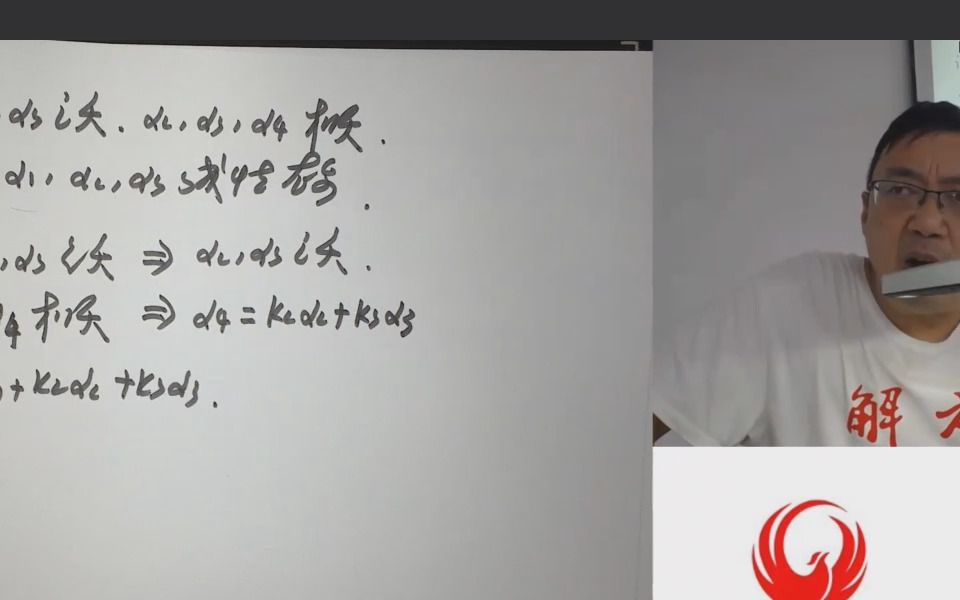 α3无关. α2, α3, α4 相关.
α1, α2, α3 线性表示.
, α3无关 ⇒ α2, α3无关.
α4 相关 ⇒ α4 = k2α2 + k3α3
+ k2α2 + k3α3.
解